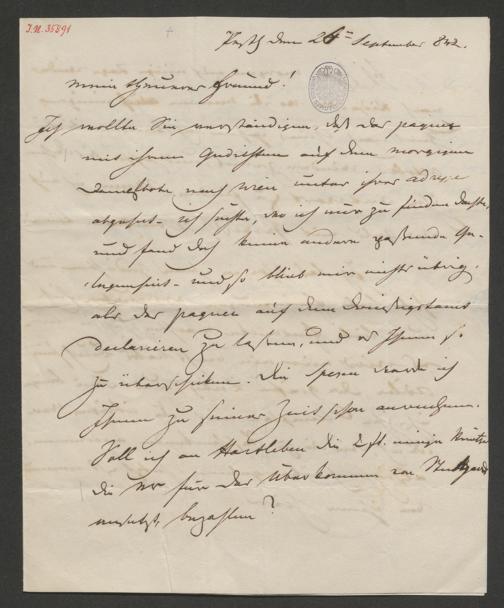 I.N. 35891
Pesth den 26ten September 842.
mein theurer Freund!
Ich wollte Sie verständigen, daß das paquet
mit ihren Gedichten auf dem morgigen
Dampfbote nach Wien unter ihrer Adresse
abgeht. ich suchte, wo ich nur zu finden dachte,
und fand doch keine andere passende Ge-
legenheit - und so blieb mir nichts übrig,
als das paquet auf dem
declariren zu lassen, und es Ihnen so
zu überschicken. Die Spesen werde ich
Ihnen zu seiner Zeit schon anrechnen.
Soll ich an Hartleben die
die er für das Überkommen von Stuttgart
ansetzt, bezahlen?